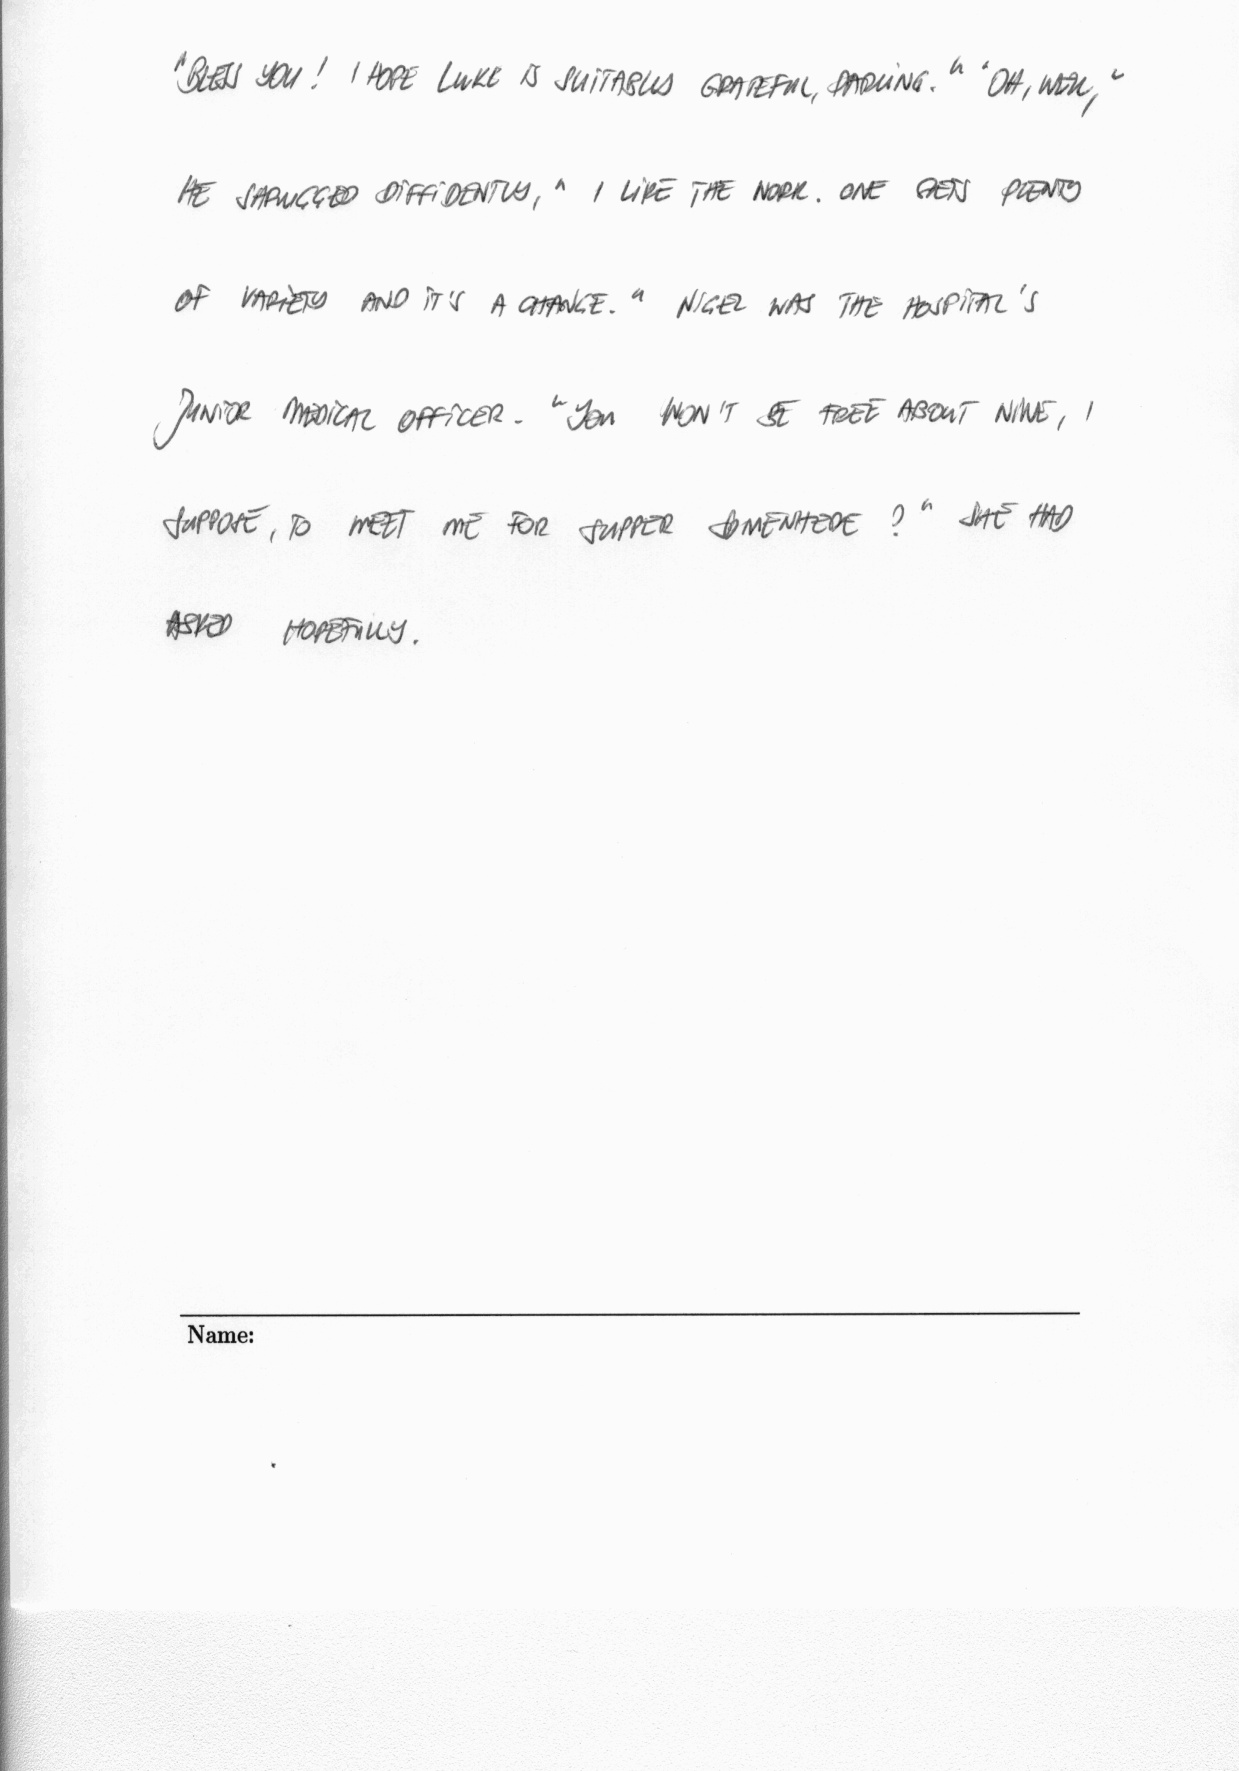 "BLESS YOU! I HOPE LUKE IS SUITABLY GRATEFUL, DARLING." "OH, WELL,"
HE SHRUGGED DIFFIDENTLY, " I LIKE THE WORK. ONE GETS PLENTY
OF VARIETY AND IT'S A CHANGE." NIGEL WAS THE HOSPITAL'S
JUNIOR MEDICAL OFFICER. "YOU WON'T BE FREE ABOUT NINE, I
SUPPOSE, TO MEET ME FOR SUPPER SOMEWHERE ?" SHE HAD
ASKED HOPEFULLY.
Name: